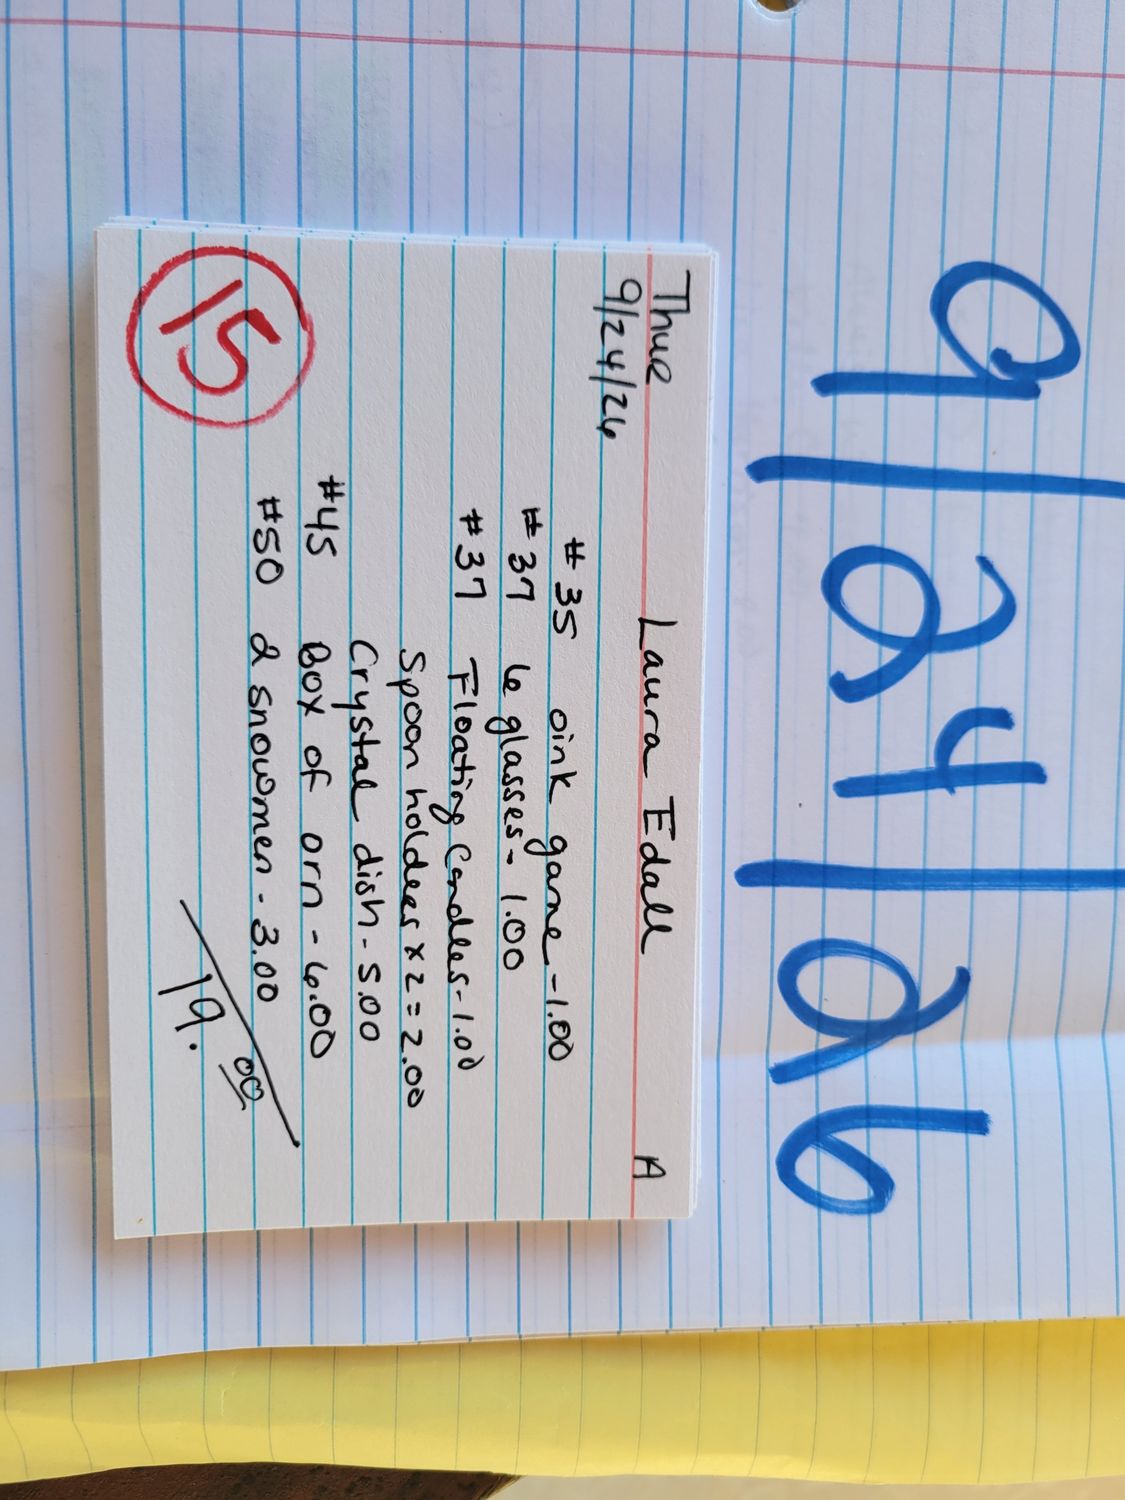 9/24/26
Thur Laura Edall A
9/24/26
#35 oink game - 1.00
#37 6 glasses - 1.00
#37 Floating Candles - 1.00
Spoon holders x 2 = 2.00
Crystal dish - 5.00
#45 Box of orn - 6.00
#50 2 snowmen - 3.00
15 19.00